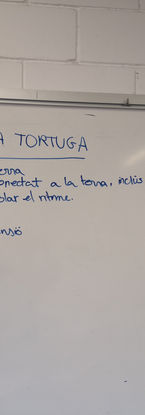 A TORTUGA
erra
onectat a la terra, inclús
olar el ritme.
nsió